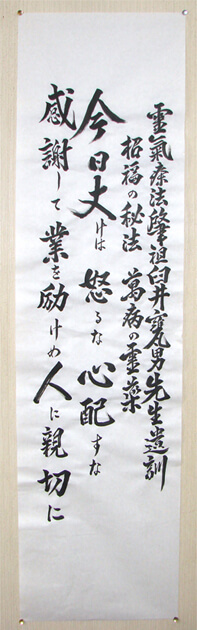 靈氣療法肇祖臼井甕男先生遺訓
招福の秘法 萬病の靈薬
今日丈けは 怒るな 心配すな
感謝して 業を励けめ 人に親切に